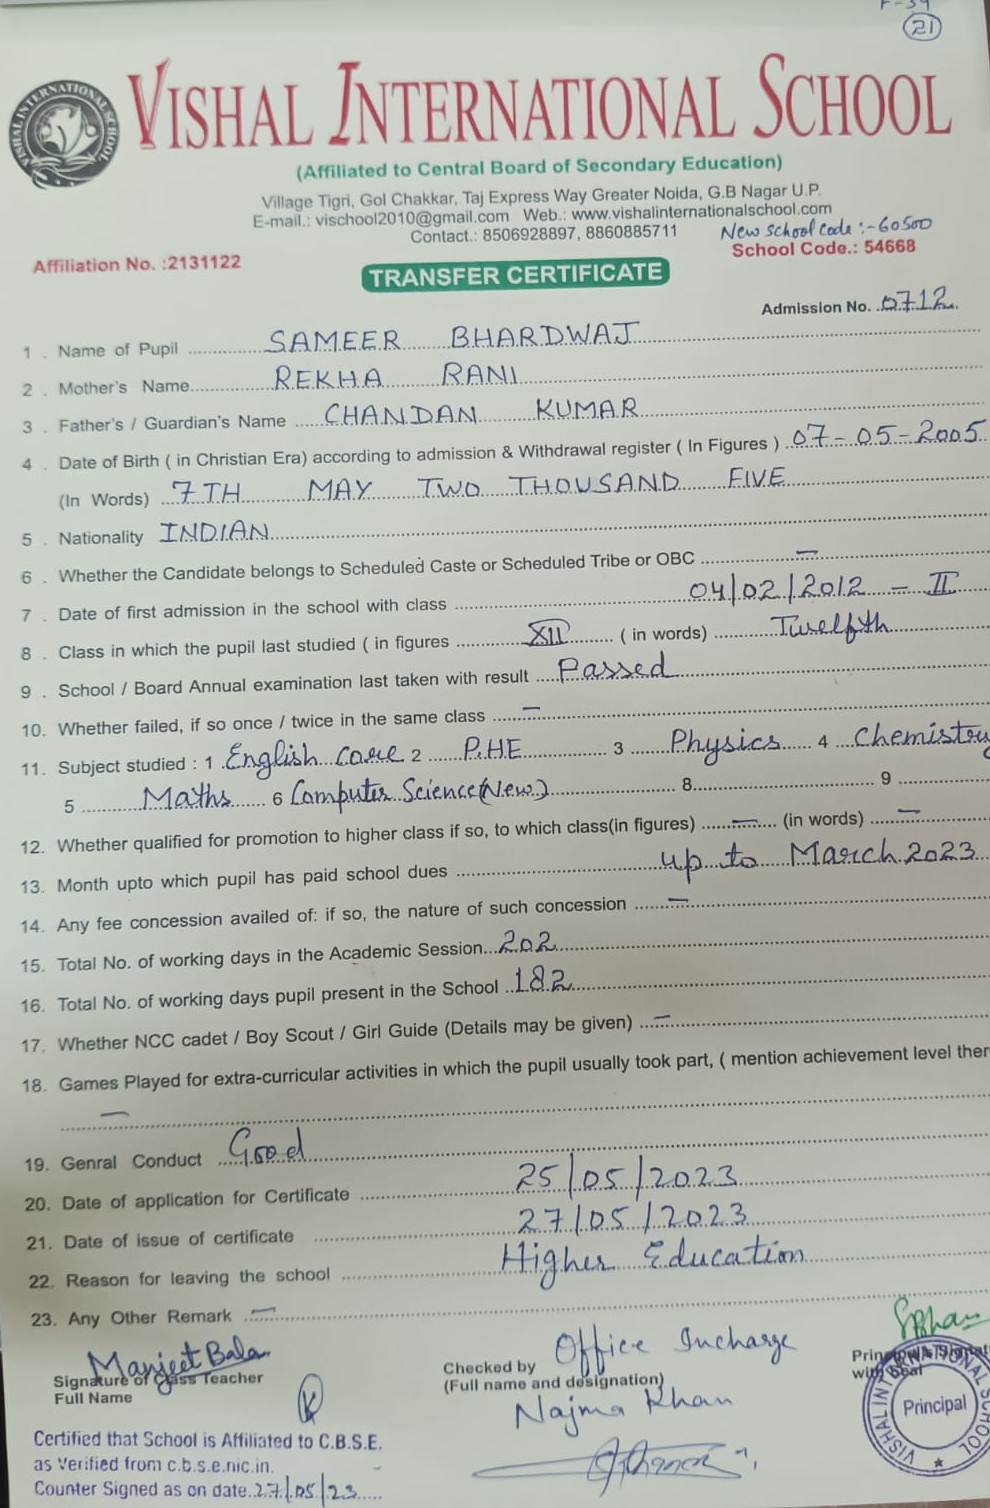 21
VISHAL INTERNATIONAL SCHOOL
VISHAL INTERNATIONAL SCHOOL
(Affiliated to Central Board of Secondary Education)
Village Tigri, Gol Chakkar, Taj Express Way Greater Noida, G.B Nagar U.P.
E-mail.: vischool2010@gmail.com Web.: www.vishalinternationalschool.com
Contact.: 8506928897, 8860885711 New School Code :- 60500
Affiliation No. :2131122 School Code.: 54668
TRANSFER CERTIFICATE
Admission No. 0712
1 . Name of Pupil SAMEER BHARDWAJ
2 . Mother's Name REKHA RANI
3 . Father's / Guardian's Name CHANDAN KUMAR
4 . Date of Birth ( in Christian Era) according to admission & Withdrawal register ( In Figures ) 07-05-2005
(In Words) 7TH MAY TWO THOUSAND FIVE
5 . Nationality INDIAN
6 . Whether the Candidate belongs to Scheduled Caste or Scheduled Tribe or OBC —
7 . Date of first admission in the school with class 04/02/2012 - II
8 . Class in which the pupil last studied ( in figures XII ( in words) Twelfth
9 . School / Board Annual examination last taken with result Passed
10. Whether failed, if so once / twice in the same class —
11. Subject studied : 1 English Core 2 P.HE 3 Physics 4 Chemistry
5 Maths 6 Computer Science(New) 8 9
12. Whether qualified for promotion to higher class if so, to which class(in figures) — (in words) —
13. Month upto which pupil has paid school dues up to March 2023
14. Any fee concession availed of: if so, the nature of such concession —
15. Total No. of working days in the Academic Session 202
16. Total No. of working days pupil present in the School 182
17. Whether NCC cadet / Boy Scout / Girl Guide (Details may be given) —
18. Games Played for extra-curricular activities in which the pupil usually took part, ( mention achievement level ther
—
19. Genral Conduct Good
20. Date of application for Certificate 25/05/2023
21. Date of issue of certificate 27/05/2023
22. Reason for leaving the school Higher Education
23. Any Other Remark —
Manjeet Bala
Signature of Class Teacher
Full Name
Office Incharge
Checked by
(Full name and designation)
Najma Khan
with Seal
VISHAL INTERNATIONAL SCHOOL
Principal
Certified that School is Affiliated to C.B.S.E.
as Verified from c.b.s.e.nic.in.
Counter Signed as on date 27/05/23